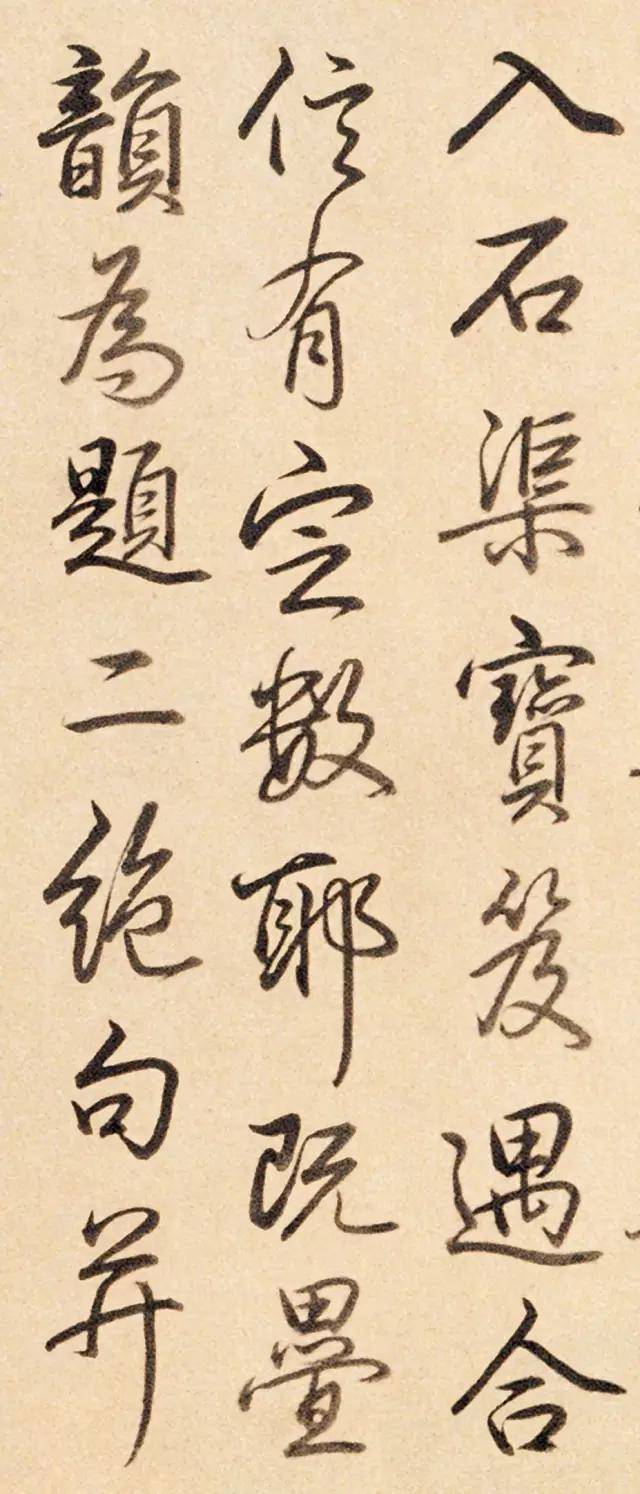 入石渠寶笈遇合
信有定數耶既疊
韻為題二絶句并